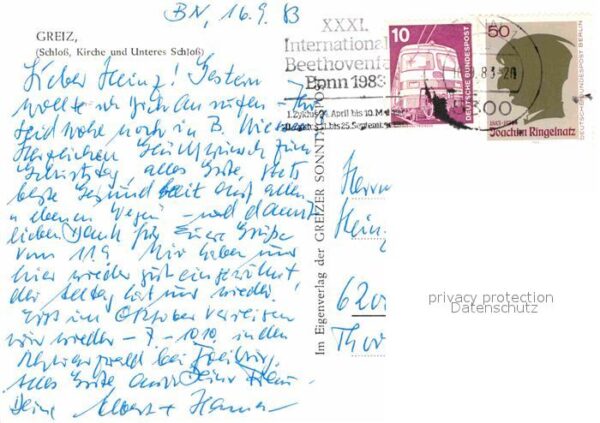 BN, 16.9.83
GREIZ,
(Schloß, Kirche und Unteres Schloß)
Lieber Heinz! Gestern
wollte ich Dich anrufen - Ihr
seid wohl noch in B.
Herzlichen Glückwunsch zum
Geburtstag, alles Gute, stets
beste Gesundheit auf allen
ebenen Wegen - und damit
lieben Dank für Eure Grüße
vom 11.9. Wir haben uns
hier wieder gut eingewöhnt
der Alltag hat uns wieder!
Erst im Oktober verreisen
wir wieder - 7.-10.10. in den
bei Freiburg.
Alles Gute auch Deiner Frau
Deine Albert + Hanna
Im Eigenverlag der GREIZER SONNTAGSPOST
XXXI.
International
Beethovenfe
Bonn 1983
1. Zyklus April bis 10. M
bis 25. Septem
83-20
5300
10
DEUTSCHE BUNDESPOST
50
DEUTSCHE BUNDESPOST BERLIN
1883-1934
Joachim Ringelnatz
Herrn
Heinz
6200
privacy protection
Datenschutz